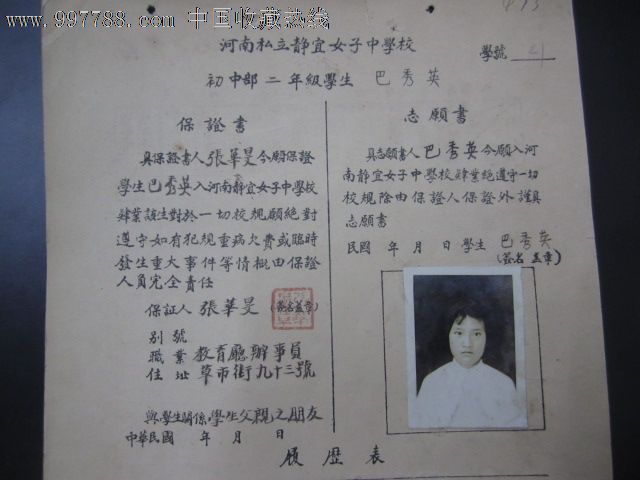 www.997788.com 中国收藏热线
河南私立靜宜女子中學校
學號
初中部二年級學生 巴秀英
保證書
具保證書人張華旻今願保證
學生巴秀英入河南靜宜女子中學校
肄業該生對於一切校規願絕對
遵守如有犯規重病欠費或臨時
發生重大事件等情概由保證
人負完全責任
保証人 張華旻 (簽名蓋章)
別號
職業 教育廳辦事員
住址 草市街九十三號
與學生關係 學生父親之朋友
中華民國 年 月 日
志願書
具志願書人巴秀英今願入河
南靜宜女子中學校肄業絕遵守一切
校規除由保證人保證外謹具
志願書
民國 年 月 日 學生 巴秀英
(簽名蓋章)
履歷表